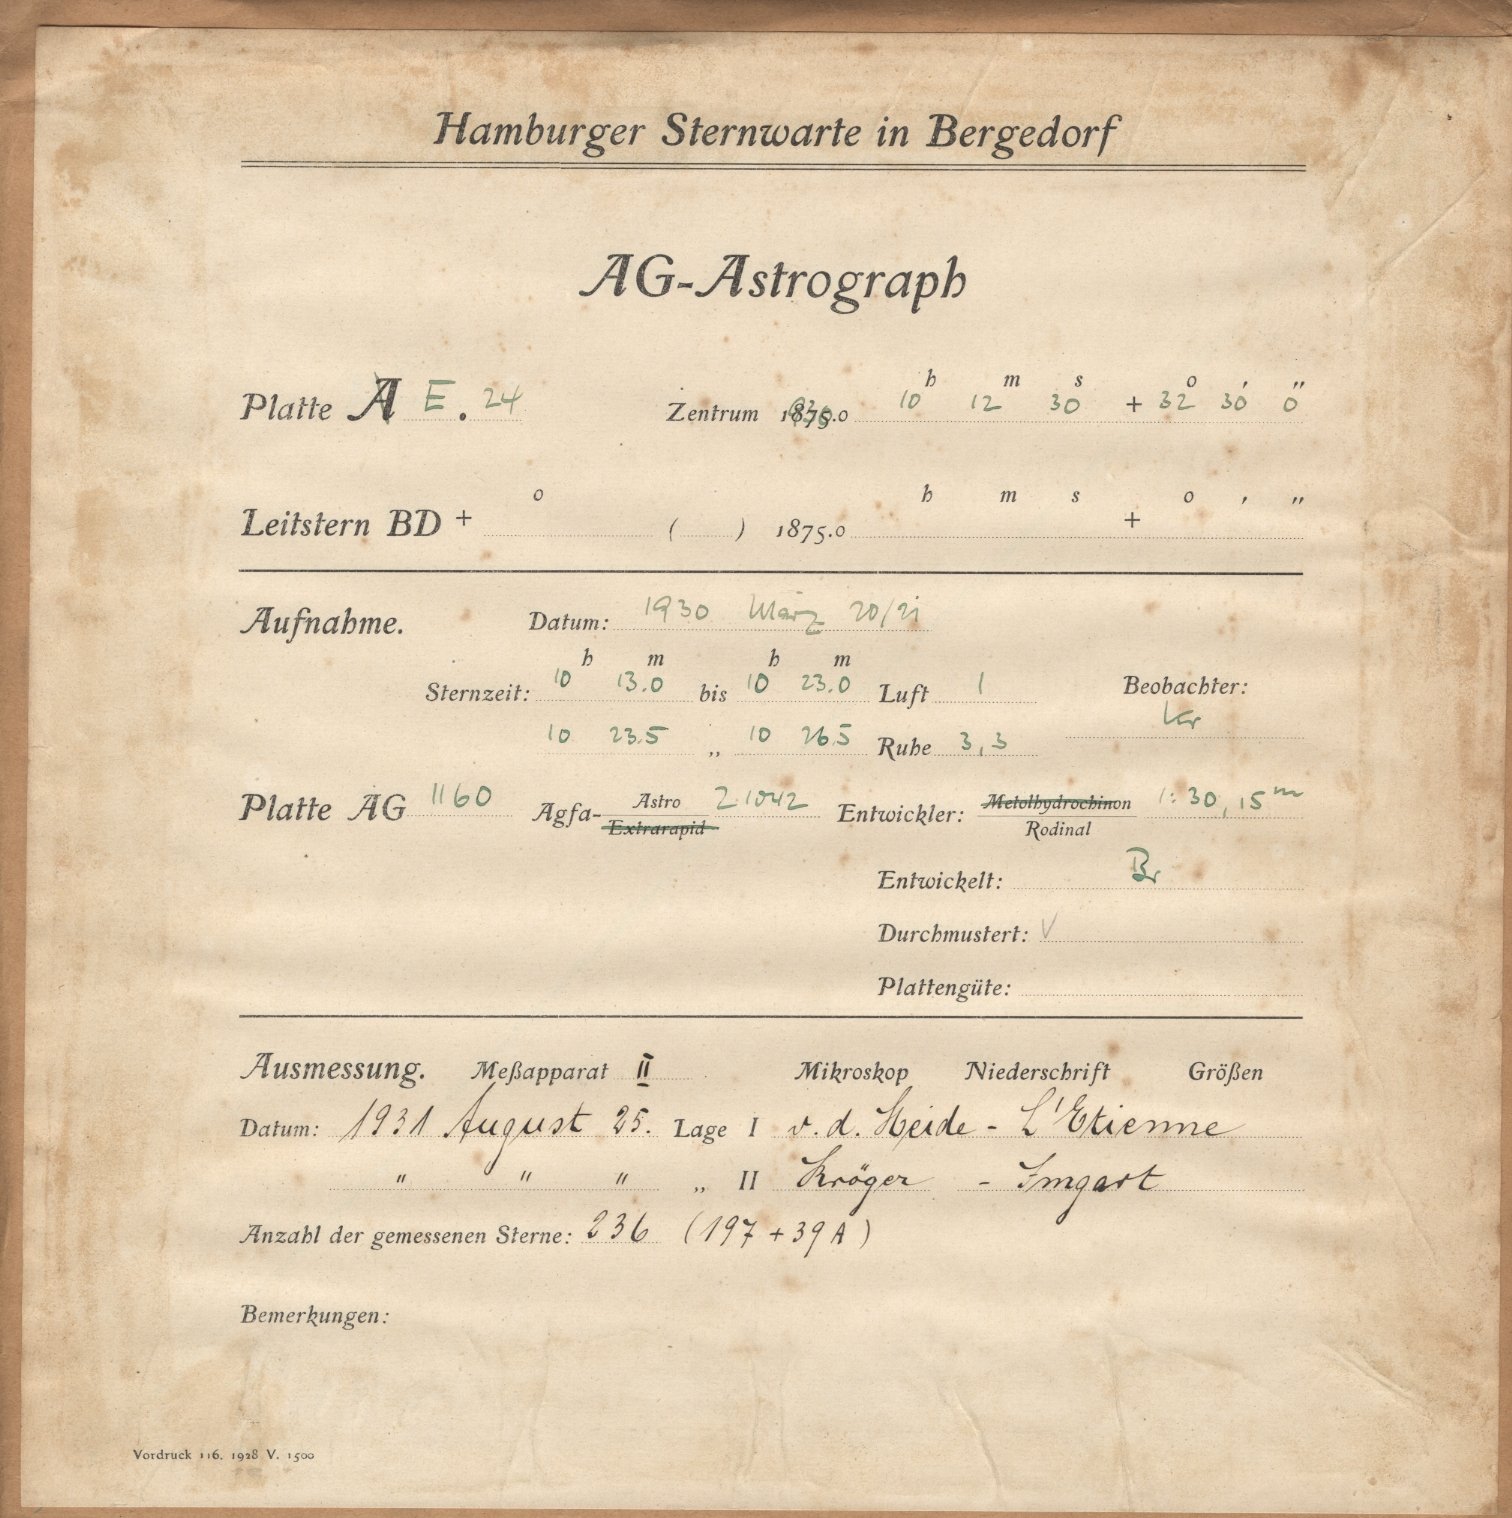 Hamburger Sternwarte in Bergedorf
AG-Astrograph
Platte A E . 24 Zentrum 1875.0 930 10 h 12 m 30 s + 32 o 30 ' 0 "
Leitstern BD + o ( ) 1875.0 h m s + o ' "
Aufnahme. Datum: 1930 März 20/21
Sternzeit: 10 h 13.0 m bis 10 h 23.0 m Luft 1 Beobachter:
Kr
10 23.5 „ 10 26.5 Ruhe 3,3
Platte AG 1160 Agfa- Astro Extrarapid Z 1042 Entwickler: Metolhydrochinon Rodinal 1:30, 15 m
Entwickelt: Br
Durchmustert: V
Plattengüte:
Ausmessung. Meßapparat II Mikroskop Niederschrift Größen
Datum: 1931 August 25. Lage I v. d. Heide - L'Etienne
" " " „ II Kröger - Imgart
Anzahl der gemessenen Sterne: 236 (197 + 39 A)
Bemerkungen:
Vordruck 116. 1928 V. 1500